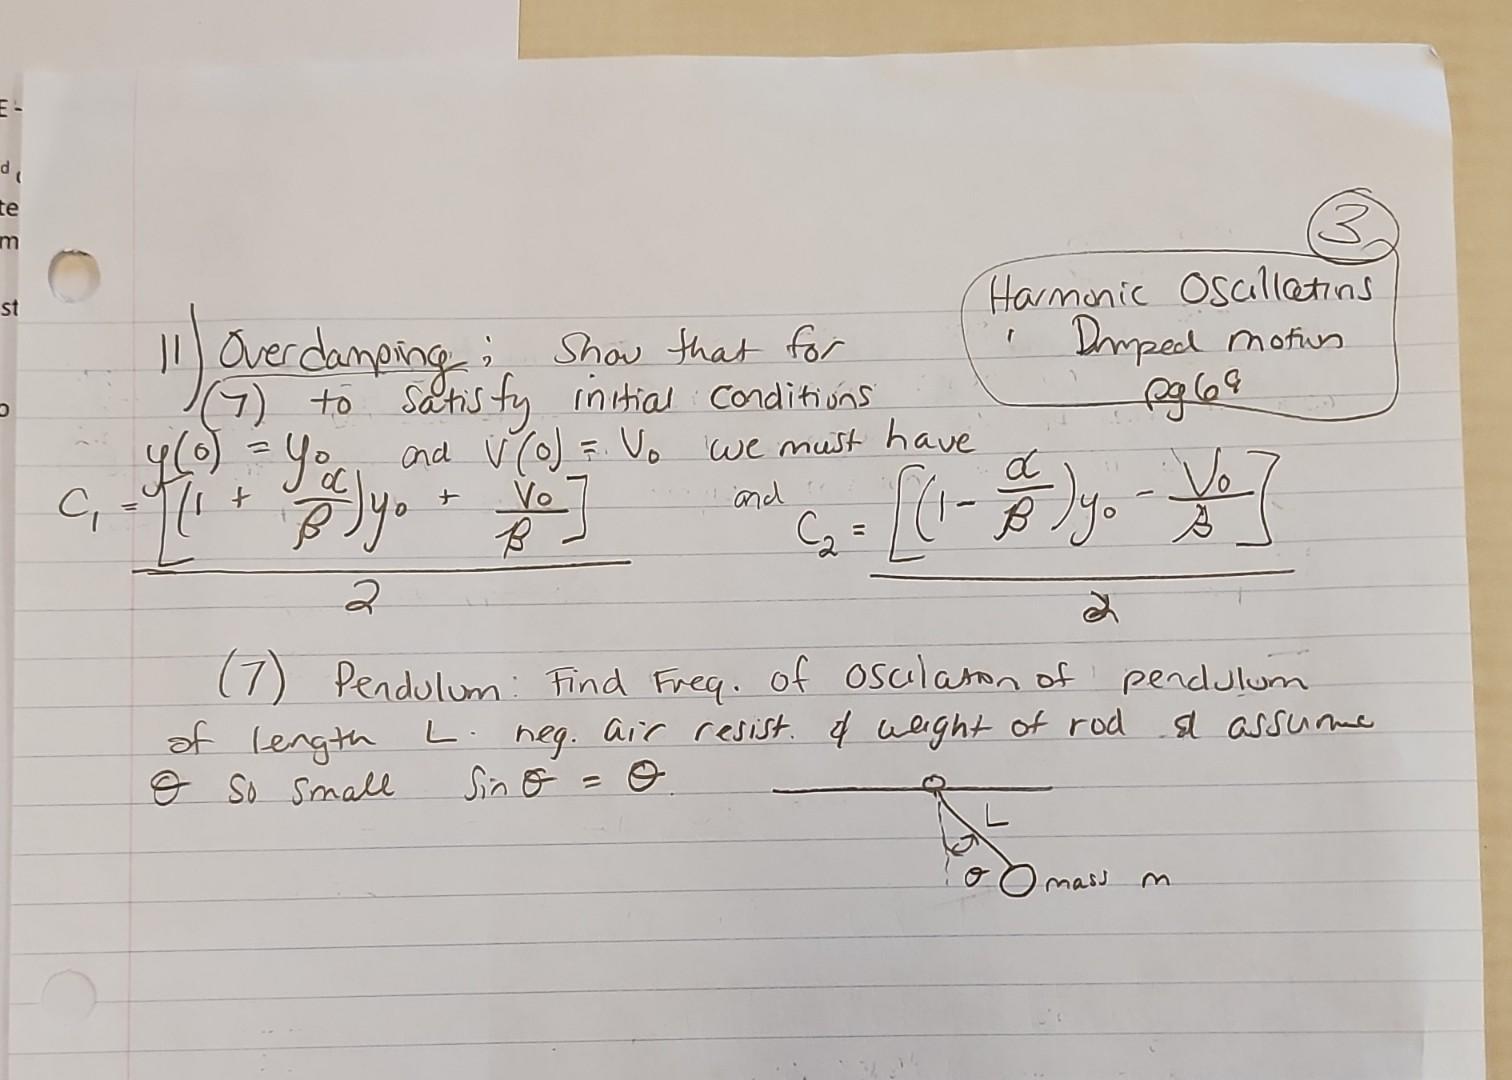 E-
d
te
m
st
3.
Harmonic Oscillations
Damped motion
pg 69
11) Overdamping; Show that for
(7) to satisfy initial conditions
y(0) = y₀ and v(0) = v₀ we must have
C₁ = [(1 + α/β)y₀ + v₀/β] / 2 and C₂ = [(1 - α/β)y₀ - v₀/β] / 2
(7) Pendulum: Find Freq. of oscilation of pendulum
of length L. neg. air resist. & weight of rod & assume
θ so small Sin θ = θ.
L
θ mass m